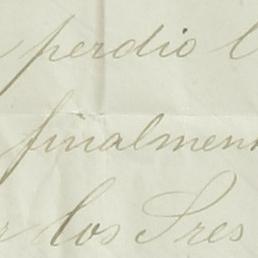 perdio l
finalmen
r los Sres